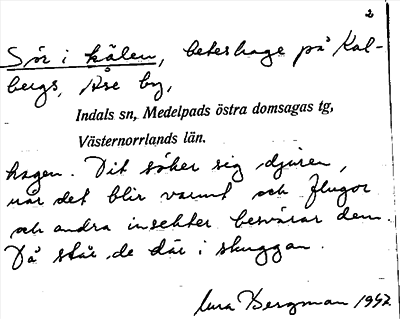 2
Sör i kälen, beteshage på Kal-
bergs, Åse by,
Indals sn, Medelpads östra domsagas tg,
Västernorrlands län.
hagen. Dit söker sig djuren,
när det blir varmt och flugor
och andra insekter besvärar dem.
Då står de där i skuggan.
Bergman 1942